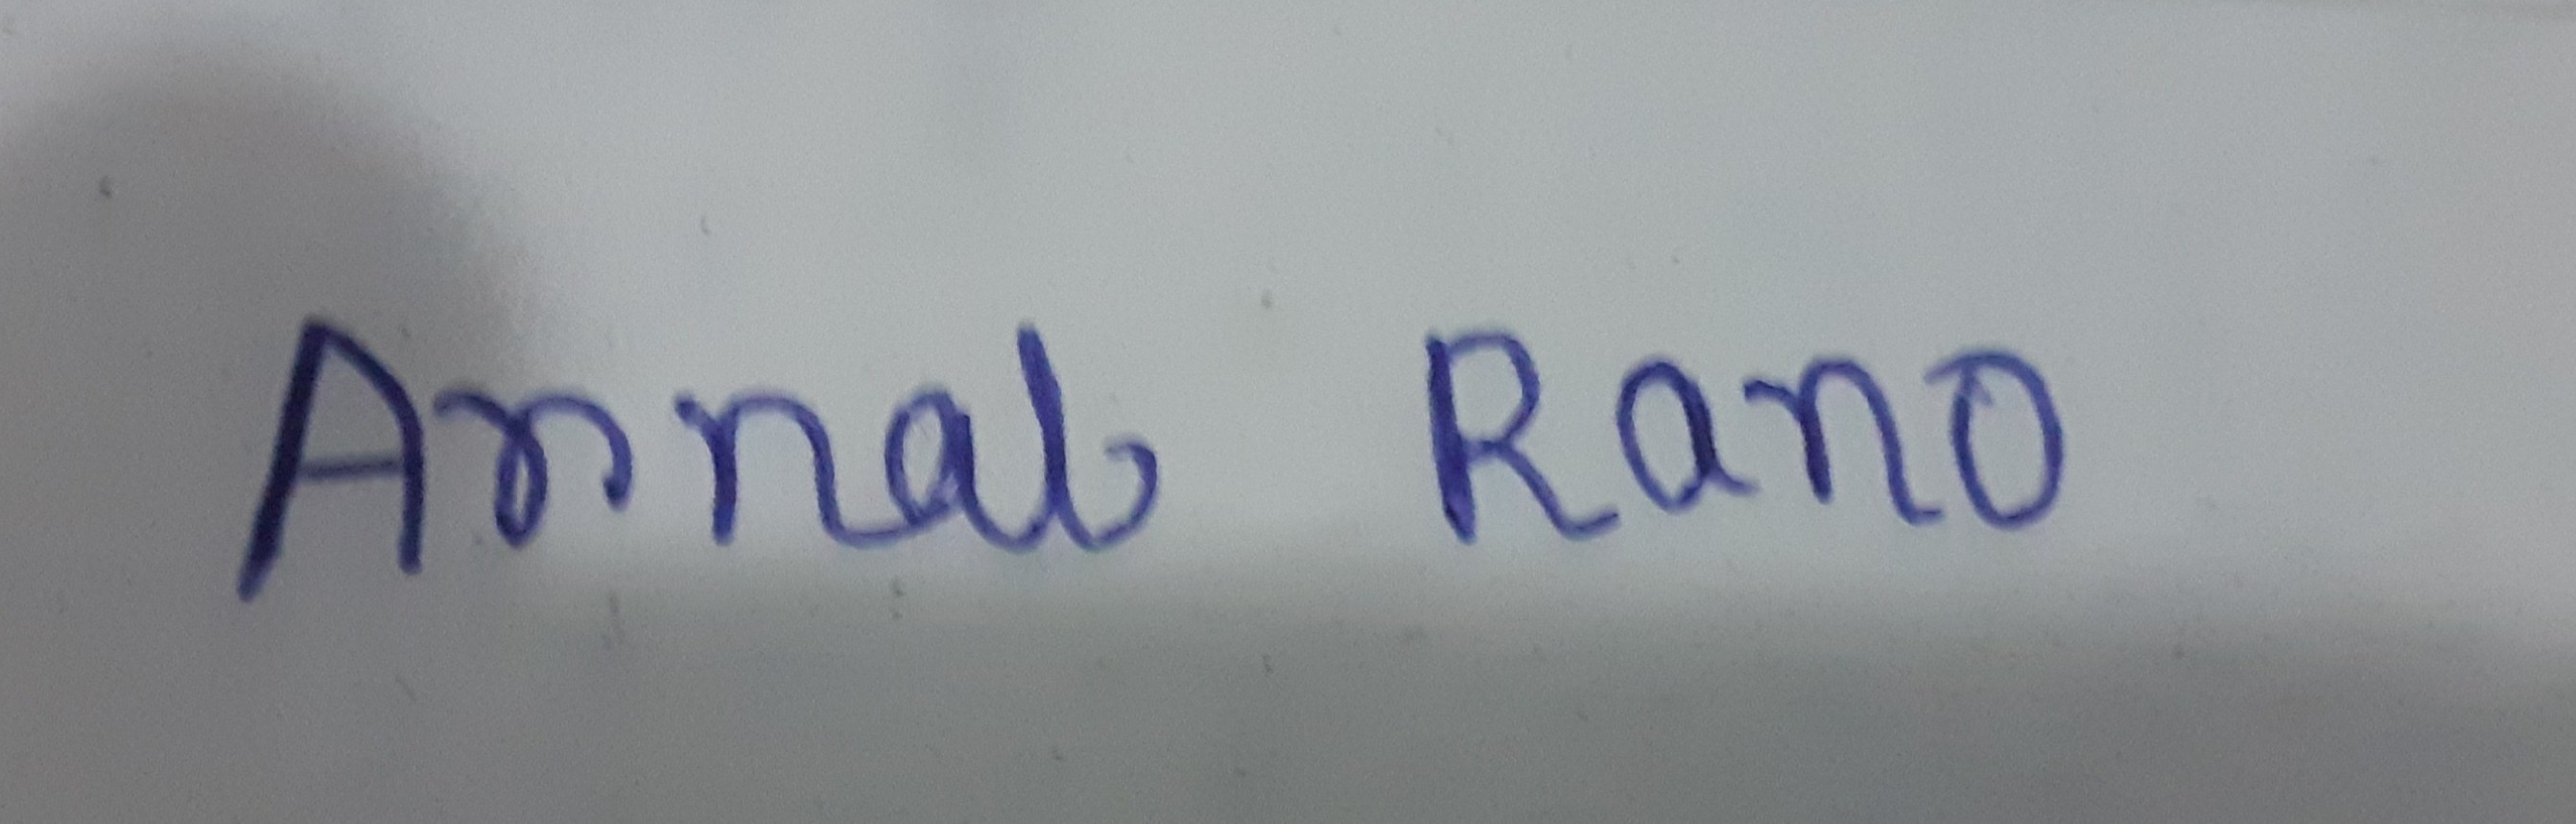 Arnab Rano